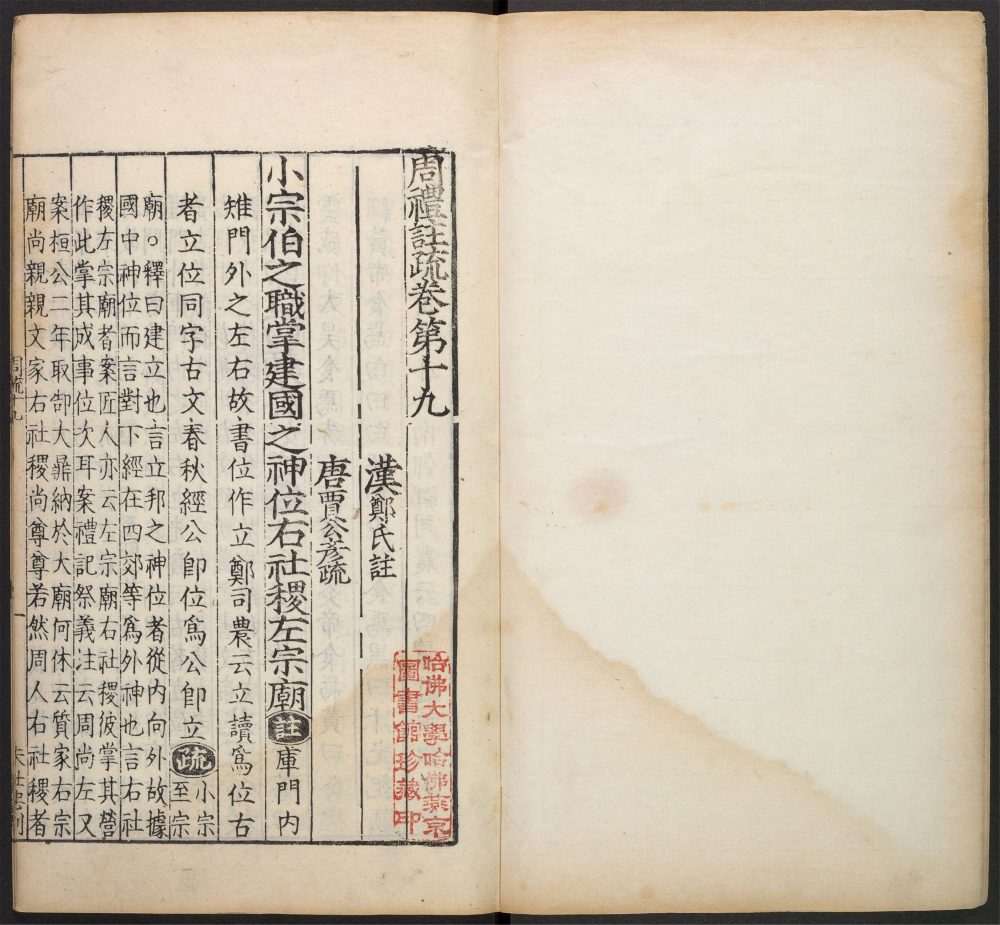 周禮註疏卷第十九
漢鄭氏註
唐賈公彦疏
小宗伯之職掌建國之神位右社稷左宗廟註庫門內
雉門外之左右故書位作立鄭司農云立讀爲位右
者立位同字古文春秋經公卽位爲公卽立疏小宗至宗
廟○釋曰建立也言立邦之神位者從內向外故據
國中神位而言對下經在四郊等爲外神也言右社
稷左宗廟者案匠人亦云左宗廟右社稷彼掌其營
作此掌其成事位次耳案禮記祭義注云周尚左又
案桓公二年取郜大鼎納於大廟何休云質家右宗
廟尚親親文家右社稷尚尊尊若然周人右社稷者
周疏十九
一
哈佛大學哈佛燕京
圖書館珍藏印